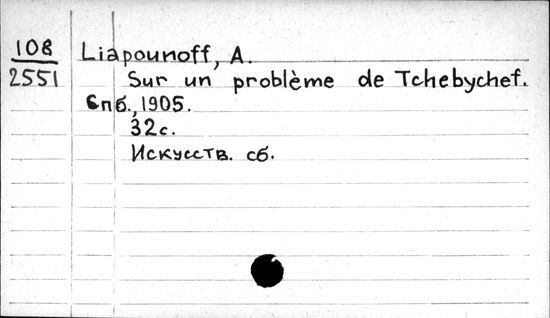 108 Liapounoff, A.
2551 Sur un problème de Tchebychef.
Спб., 1905.
32с.
Искусств. сб.